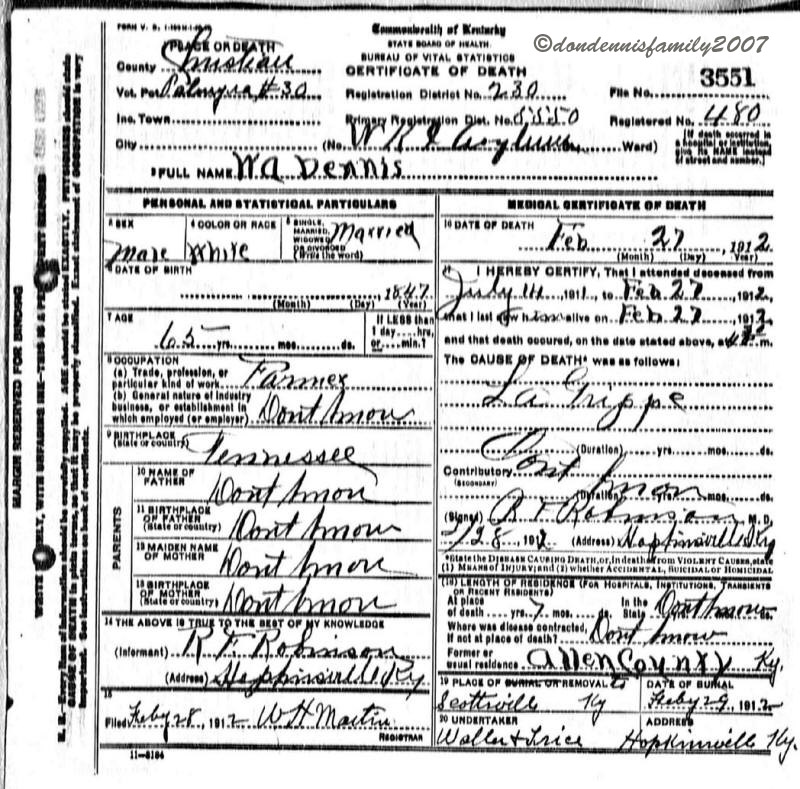 ©dondennisfamily2007
Commonwealth of Kentucky
STATE BOARD OF HEALTH.
BUREAU OF VITAL STATISTICS
CERTIFICATE OF DEATH
PLACE OF DEATH
County Christian
Vot. Pct Palmyra #30
Inc. Town
City
Registration District No. 230
Primary Registration Dist. No. 5550
(No. W K I Asylum Ward)
File No. 3551
Registered No. 480
[If death occurred in a hospital or institution, give its NAME instead of street and number.]
FULL NAME W A Dennis
PERSONAL AND STATISTICAL PARTICULARS
3 SEX Male
4 COLOR OR RACE White
5 SINGLE, MARRIED, WIDOWED OR DIVORCED (Write the word) Married
6 DATE OF BIRTH
1847
(Month) (Day) (Year)
7 AGE
65 yrs. mos. ds.
If LESS than 1 day hrs. or min.?
8 OCCUPATION
(a) Trade, profession, or particular kind of work Farmer
(b) General nature of industry business, or establishment in which employed (or employer) Dont know
9 BIRTHPLACE (State or country) Tennessee
PARENTS
10 NAME OF FATHER Dont know
11 BIRTHPLACE OF FATHER (State or country) Dont know
12 MAIDEN NAME OF MOTHER Dont know
13 BIRTHPLACE OF MOTHER (State or country) Dont know
14 THE ABOVE IS TRUE TO THE BEST OF MY KNOWLEDGE
(Informant) R F Robinson
(Address) Hopkinsville Ky
15
Filed Feby 28, 1912 W H Martin
REGISTRAR
11-5184
MEDICAL CERTIFICATE OF DEATH
16 DATE OF DEATH
Feb 27, 1912
(Month) (Day) Year
17 I HEREBY CERTIFY, That I attended deceased from
July 14 1911, to Feb 27, 1912,
that I last saw him alive on Feb 27, 1912,
and that death occured, on the date stated above, at m.
The CAUSE OF DEATH* was as follows:
La Grippe
(Duration) yrs. mos. ds.
Contributory Dont know
(SECONDARY)
(Duration) yrs. mos. ds.
(Signed) R F Robinson M.D.
2/28, 1912 (Address) Hopkinsville Ky
*State the DISEASE CAUSING DEATH, or, in deaths from VIOLENT CAUSES, state
(1) MEANS OF INJURY; and (2) whether ACCIDENTAL, SUICIDAL or HOMICIDAL
(18) LENGTH OF RESIDENCE (FOR HOSPITALS, INSTITUTIONS, TRANSIENTS OR RECENT RESIDENTS)
At place of death yrs. 7 mos. ds. In the State Dont know
Where was disease contracted, If not at place of death? Dont know
Former or usual residence Allen County Ky.
19 PLACE OF BURIAL OR REMOVAL
Scottsville Ky
DATE OF BURIAL
Feby 29, 1912
20 UNDERTAKER
Waller & Trice
ADDRESS
Hopkinsville Ky.
MARGIN RESERVED FOR BINDING